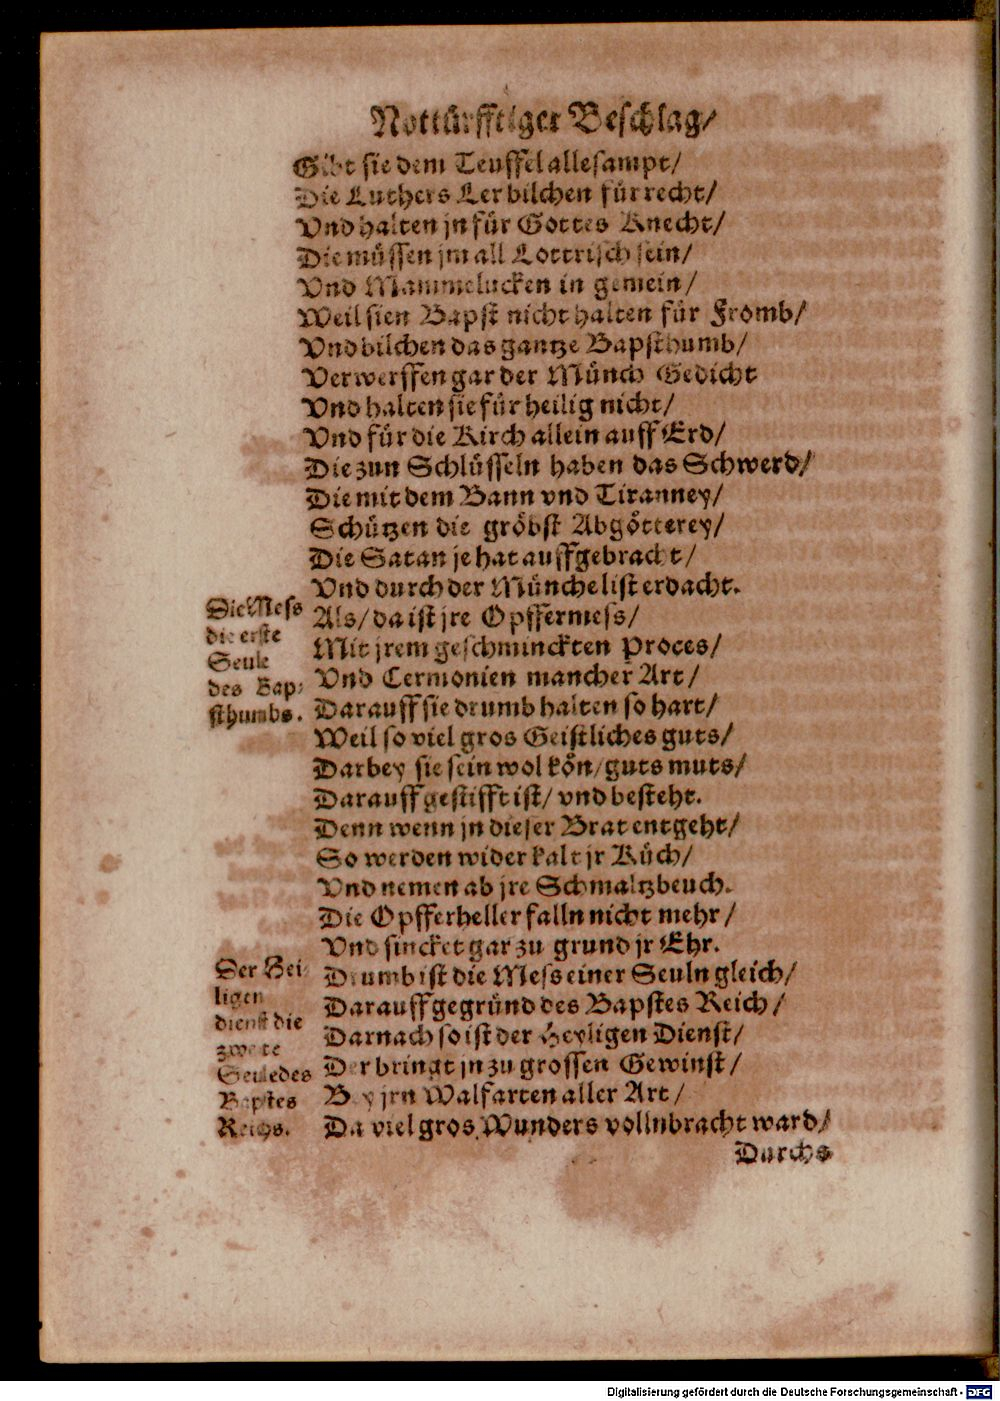 Nottürfftiger Beschlag/
Gibt sie dem Teuffel allesampt/
Die Luthers Ler bilchen für recht/
Vnd halten jn für Gottes Knecht/
Die müssen jm all Lottrisch sein/
Vnd Mammelucken in gemein/
Weil sien Bapst nicht halten für Fromb/
Vnd bilchen das gantze Bapsthumb/
Verwerffen gar der Münch Gedicht
Vnd halten sie für heilig nicht/
Vnd für die Kirch allein auff Erd/
Die zun Schlüsseln haben das Schwerd/
Die mit dem Bann vnd Tiranney/
Schützen die gröbst Abgötterey/
Die Satan je hat auffgebracht/
Vnd durch der Münche list erdacht.
Die Mess
die erste
Seule
des Bap-
sthumbs.
Als/ da ist jre Opffermess/
Mit jrem geschminckten Proces/
Vnd Cermonien mancher Art/
Darauff sie drumb halten so hart/
Weil so viel gros Geistliches guts/
Darbey sie sein wol kön/ guts muts/
Darauff gestifft ist/ vnd besteht.
Denn wenn jn dieser Brat entgeht/
So werden wider kalt jr Küch/
Vnd nemen ab jre Schmaltzbeuch.
Die Opfferheller falln nicht mehr/
Vnd sincket gar zu grund jr Ehr.
Der Hei-
ligen
dienst die
zwete
Seule des
Bapstes
Reichs.
Drumb ist die Mess einer Seuln gleich/
Darauff gegründ des Bapstes Reich/
Darnach so ist der Heyligen Dienst/
Der bringt jn zu grossen Gewinst/
Bey jrn Walfarten aller Art/
Da viel gros Wunders vollnbracht ward/
Durchs
Digitalisierung gefördert durch die Deutsche Forschungsgemeinschaft - DFG